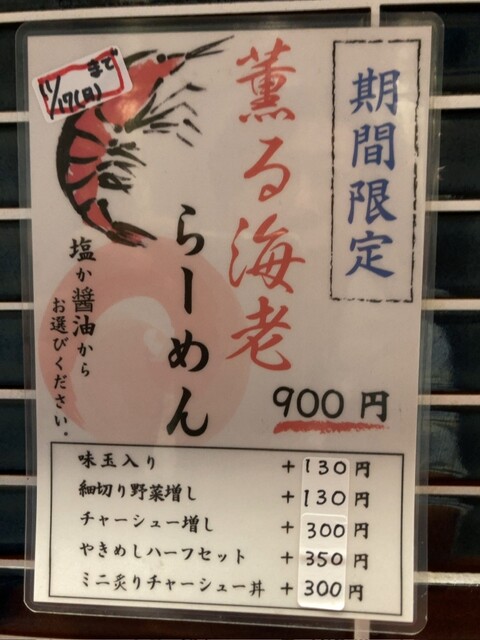 期間限定
11/17(日)
まで
薫る海老
らーめん
塩か醤油から
お選びください。
900円
味玉入り +130円
細切り野菜増し +130円
チャーシュー増し +300円
やきめしハーフセット +350円
ミニ炙りチャーシュー丼 +300円